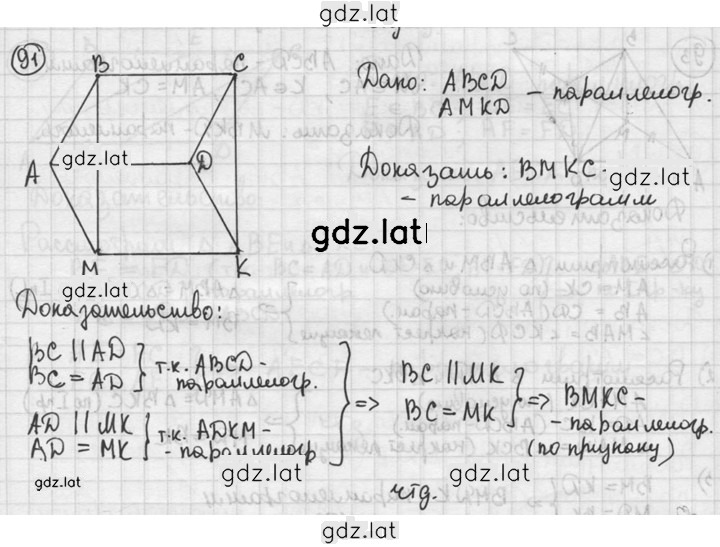 gdz.lat
91
B C
Дано: ABCD
AMKD - параллелогр.
A gdz.lat D
Доказать: BMKC - gdz.lat
- параллелограмм
gdz.lat
M K
gdz.lat
Доказательство:
BC || AD
BC = AD } т.к. ABCD -
- параллелогр.
AD || MK
AD = MK } т.к. ADKM -
- параллелогр.
=> BC || MK
BC = MK } => BMKC -
- параллелогр.
(по признаку)
gdz.lat gdz.lat gdz.lat
чтд.
gdz.lat